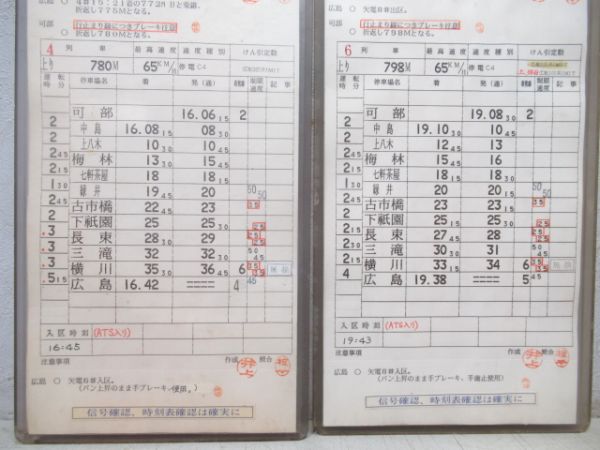 広島 ○ 4番15:21着の772M Bと乗継。
折返し775Mとなる。
可部 ○ 行止まり線につきブレーキ注意
折返し780Mとなる。
4 列車 最高速度 速度種別 けん引定数
上り 780M 65KM/H 停電C4
運転時分 停車場名 着 発(通) 着発線 制限速度 記事
可部 16.06 15 2
2 中島 16.08 15 08 30
2 上八木 10 30 10 45
2 45 梅林 13 30 15 45
2 15 七軒茶屋 18 18 15
1 30 緑井 19 45 20 50 50
2 45 古市橋 22 45 23 35
2 下祇園 25 25 30 25
3 長束 28 30 29 25 25
3 三滝 32 32 30 50 45
3 横川 35 30 36 45 6 35 35
5 15 広島 16.42 ==== 4 45
入区時刻 (ATS入り)
16:45
注意事項 作成 照合
広島 ○ 矢電6番入区。
(パン上昇のまま手ブレーキ使用。)
信号確認、時刻表確認は確実に
広島 ○ 矢電8番出区。
可部 ○ 行止まり線につきブレーキ注意
折返し798Mとなる。
6 列車 最高速度 速度種別 けん引定数
上り 798M 65KM/H 停電C4
運転時分 停車場名 着 発(通) 着発線 制限速度 記事
可部 19.08 30 2
2 中島 19.10 30 10 45
2 上八木 12 45 13
2 45 梅林 15 45 16
2 15 七軒茶屋 18 15 18 30
1 30 緑井 20 20 15 50 50
2 45 古市橋 23 23 15 35
2 下祇園 25 15 25 30 25
2 15 長束 27 45 28 25 25
2 三滝 30 31 50 45
2 15 横川 33 15 34 6 35 35
4 広島 19.38 ==== 5 45
入区時刻 (ATS入り)
19:43
注意事項 作成 照合
広島 ○ 矢電8番入区。
(パン上昇のまま手ブレーキ、手歯止使用)
信号確認、時刻表確認は確実に